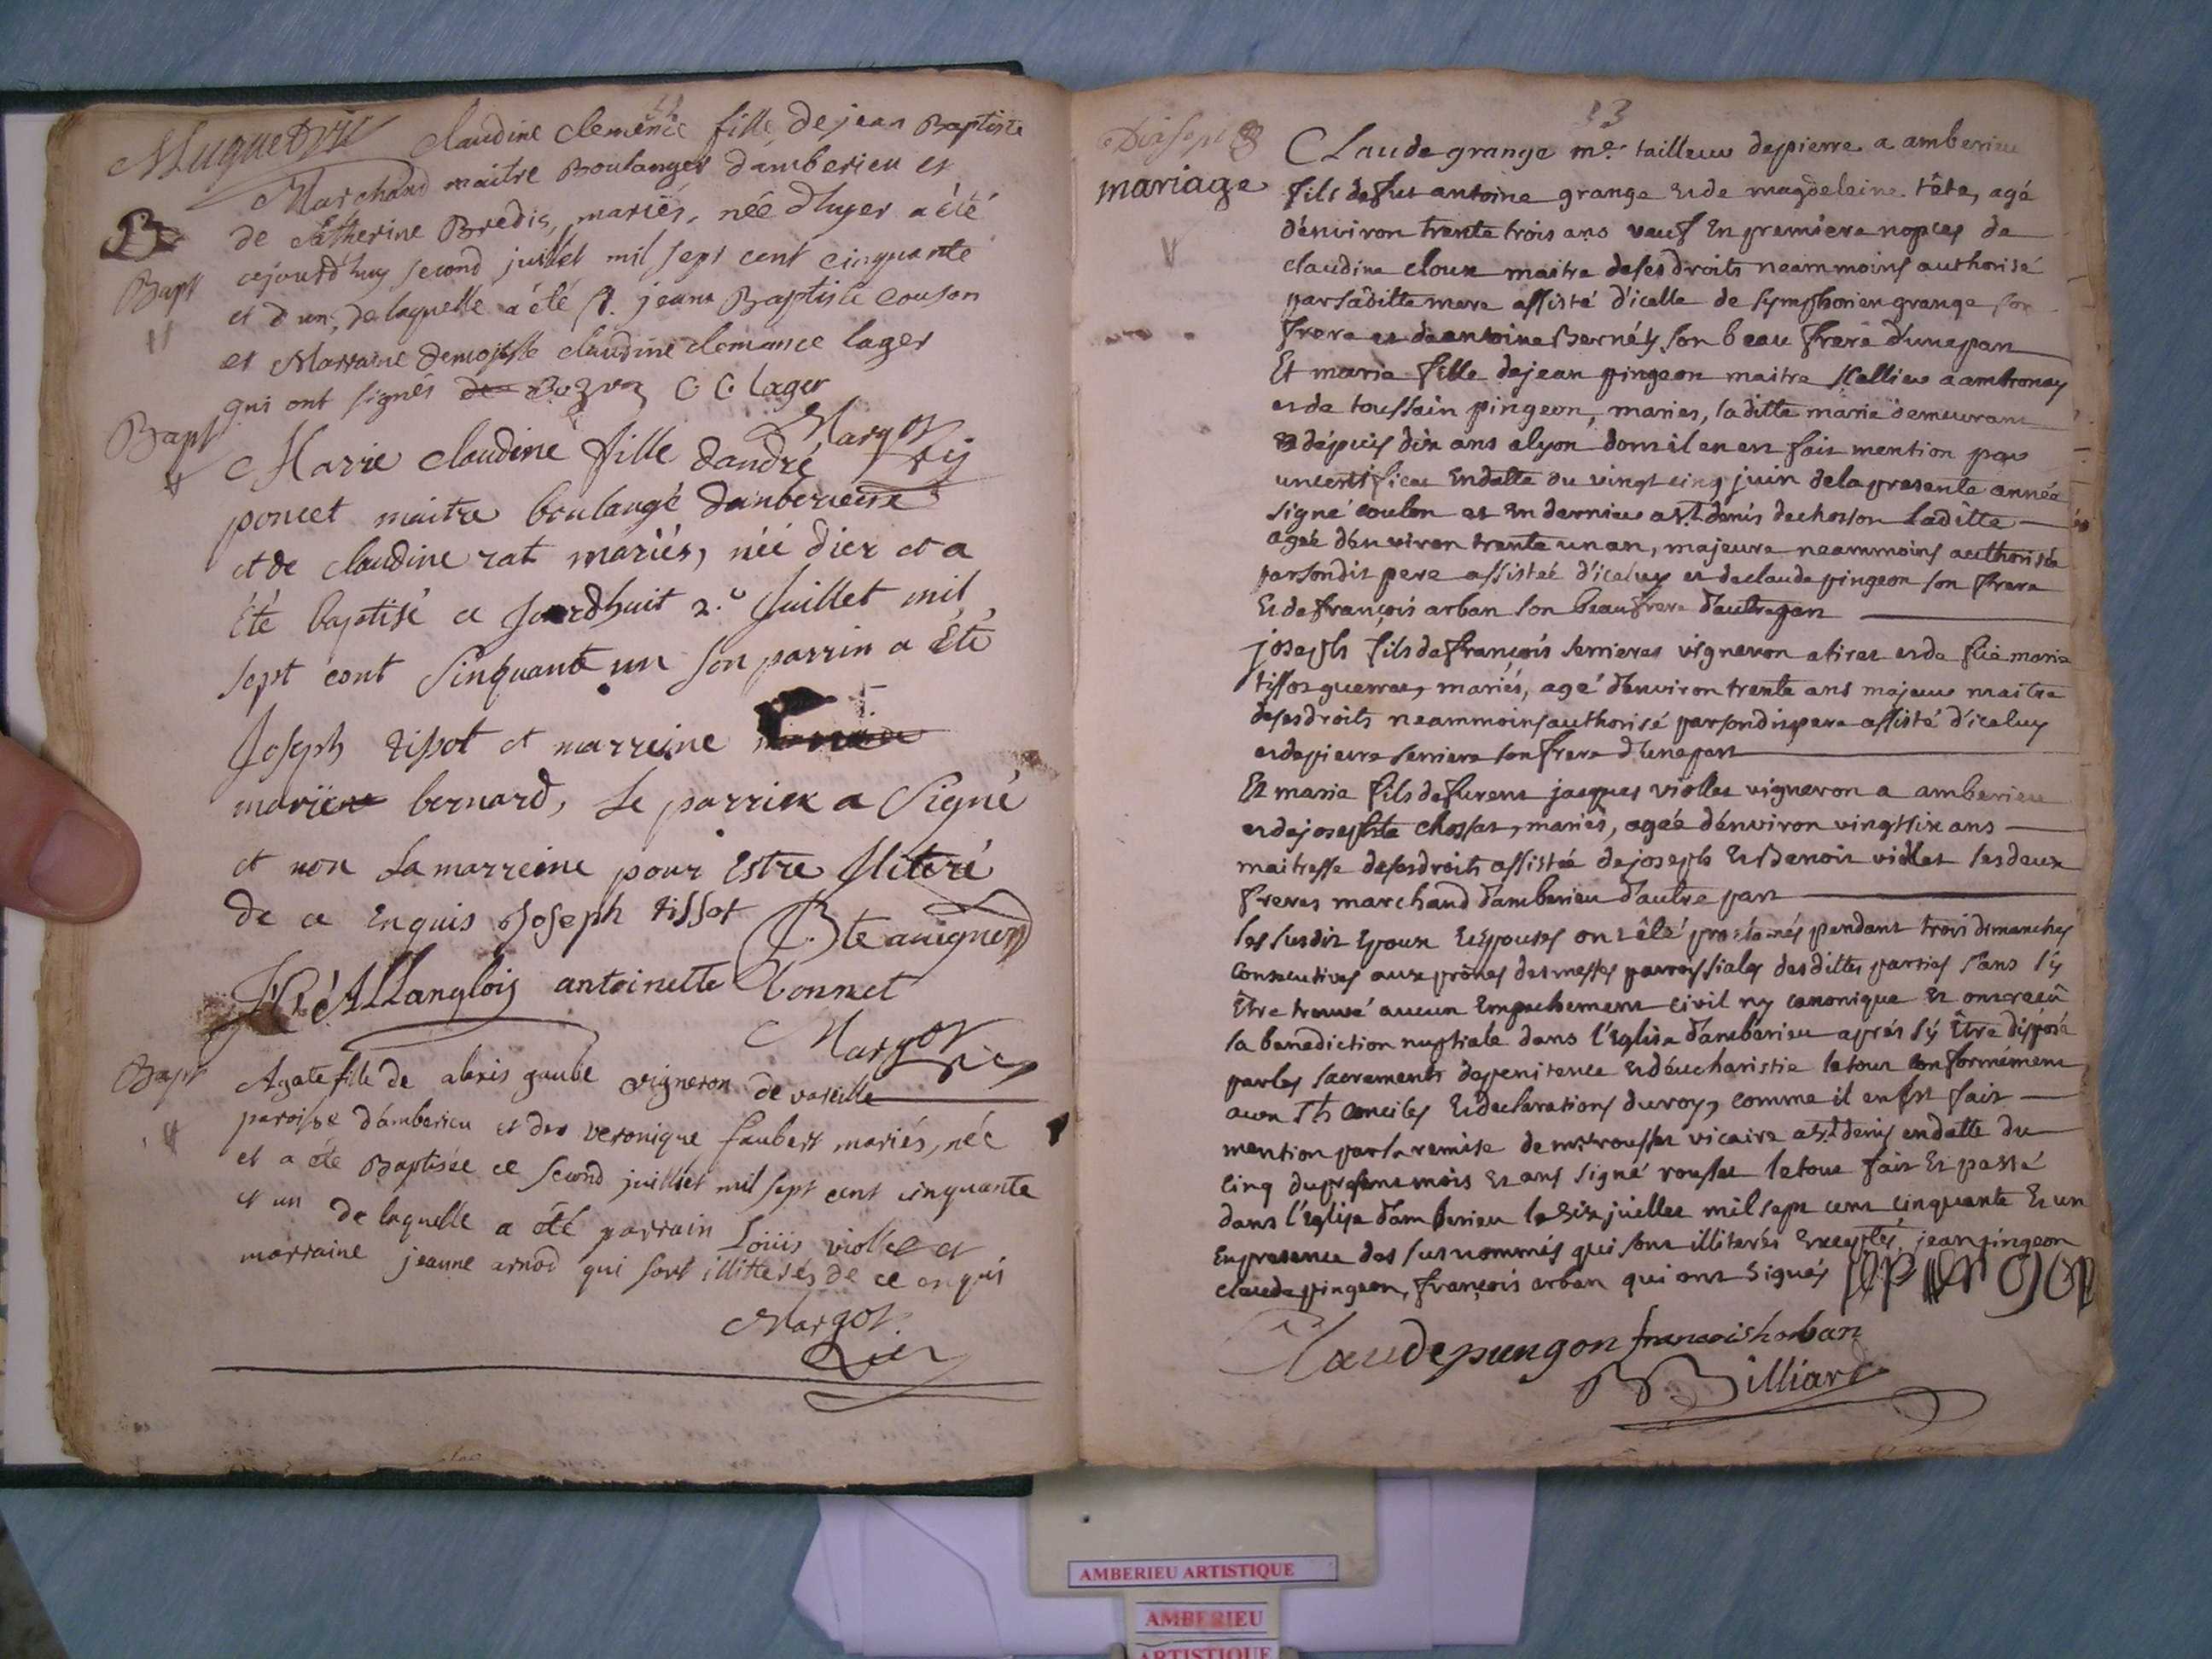 claudine clemence fille de jean Baptiste
Marchand maitre Boulanger d'amberieu et
de Catherine Bredis, mariés, née d'hyer a été
Bapt
cejourd'huy second juillet mil sept cent cinquante
et d'un, de laquelle a été p. jean Baptiste couson
et Marraine demoiselle claudine clemance lager
qui ont signés C C lager
Margot
Bapt
Marie claudine fille d'andré
poncet maitre boulangé danberieux
et de claudine rat mariés, née dier et a
été baptisé ce Jourdhuit 2.e Juillet mil
sept cent sinquante un son parrin a été
Joseph tisot et marreine
marie bernard, Le parrien a signé
et non La marreine pour estre Iliteré
de ce enquis Joseph tissot
Langlois antoinette bonnet
Margot
Bapt
Agate fille de alexis gaube vigneron de vareille
paroisse d'amberieu et de veronique faubert mariés, née
et a été Baptisée ce second juilliet mil sept cent cinquante
et un de laquelle a été parrain Loüis viollet et
marraine jeanne arnod qui sont illitterés de ce enquis
Margot
13
mariage
Claude grange me. tailleur depierre a amberieu
fils defut antoine grange et de magdeleine tête, agé
d'environ trente trois ans veuf En premiere nopces de
claudine cloux maitre deses droits neammoins authorisé
par saditte mere assisté d'icelle de symphorien grange son
frere et de antoine Bernét son beau frere d'une part
Et marie fille de jean pingeon maitre sellier a ambronay
et de toussain pingeon, maries, la ditte marie demeurant
depuis dix ans a lyon dont il en est fait mention par
un certificat En datte du vingt cinq juin de la presente année
signé coulon et En dernier a st denis de chosson Laditte
agée d'environ trente un an, majeure neammoins authorisée
par sondit pere assistée d'iceluy et de claude pingeon son frere
Et de françois arban son beaufrere d'autre part
joseph fils de françois serrieres vigneron a tiret et de füe marie
tissot guerret, mariés, agé d'environ trente ans majeur maitre
deses droits neammoins authorisé par sondit pere assisté d'iceluy
et de pierre serriere son frere d'une part
Et marie fils de furent jacques viollet vigneron a amberieu
et de josephte chosset, mariés, agée d'environ vingt six ans
maitresse deses droits assistée de joseph Et Benoit viollet ses deux
freres marchand d'amberieu d'autre part
les susdit Epoux Et Epouses ont êté proclamés pendant trois dimanches
Consecutives aux prônes des messes parroissiales des dittes parties sans s'y
être trouvé aucun Empechement civil ny canonique Et ont recû
la benediction nuptiale dans l'Eglise d'amberieu aprés s'y être disposé
par les sacrements de penitence Et d'eucharistie le tout conformement
aux Sts Conciles Et declarations du roy, comme il en est fait
mention par la remise de mr rousset vicaire a st denis en datte du
cinq du present mois Et ans signé rousset le tout fait Et passé
dans l'Eglise d'amberieu le six juillet mil sept cent cinquante Et un
En presence des sus nommés qui sont illiterés Exceptés jean pingeon
claude pingeon, françois arban qui ont signés
Claude pungon francois horban
Billiard
AMBERIEU ARTISTIQUE
AMBERIEU
ARTISTIQUE